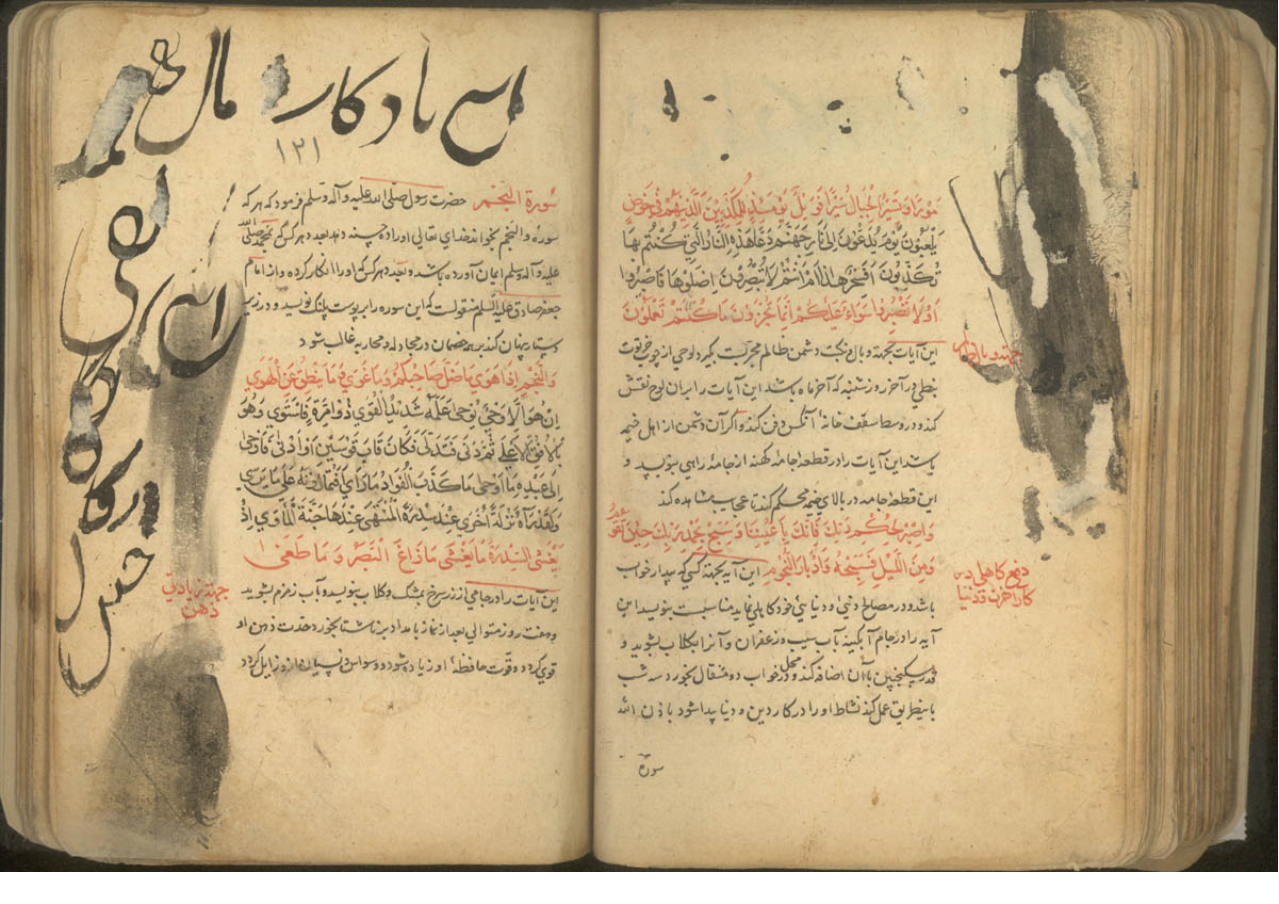 مورا وتسیر الجبال سیرا فویل یومئذ للمکذبین الذین هم فی خوض
یلعبون یوم یدعون الی نار جهنم دعا هذه النار التی کنتم بها
تکذبون افسحر هذا ام انتم لا تبصرون اصلوها فاصبروا
او لا تصبروا سواء علیکم انما تجزون ما کنتم تعملون
این آیات بجهة وبال و نکبت دشمن ظالم مجربست بگیرد لوحی از چوب خرتوت
بخطی در آخر روز شنبه که آخر ماه باشد این آیات را بران لوح نقش
کند و در وسط سقف خانه آنکس دفن کند و اکر آن دشمن از اهل خیمه
باشد این آیات را در قطعه جامه کهنه از جامهٔ راهبی بنویسد و
این قطعه جامه در بالای خیمه محکم کند تا عجایب مشاهده کند
واصبر لحکم ربک فانک باعیننا وسبح بحمد ربک حین تقوم
ومن اللیل فسبحه وادبار النجوم این آیه بجهة کسی که بیدار خواب
باشد و در مصالح دینی و دنیایی خود کاهلی نماید مناسبت بنویسد این
آیه را در جام آبکینه بآب سیب و زعفران و آنرا بکلاب بشوید و
قدر سکنجبین بآن اضافه کند و در محل خواب ده مثقال بخورد سه شب
باینطریق عمل کند نشاط او را در کار دین و دنیا پیدا شود باذن الله
سورة
دفع کاهلی در
کار آخرت و دنیا
این یادکار مال
۱۲۱
سورة النجم حضرت رسول صلی الله علیه وآله وسلم فرمود که هر که
سوره والنجم بخواند خدای تعالی او را ده چند دهد بعدد هر کس که بمحمد صلی الله
علیه وآله وسلم ایمان آورده باشد و بعدد هر کس که او را انکار کرده و از امام
جعفر صادق علیه السلم منقولست که این سوره را بر پوست پلنک نویسد و در زیر
دستار پنهان کند بر همه خصمان در مجادله و محاربه غالب شود
والنجم اذا هوی ما ضل صاحبکم وما غوی وما ینطق عن الهوی
ان هو الا وحی یوحی علمه شدید القوی ذو مرة فاستوی وهو
بالافق الاعلی ثم دنی فتدلی فکان قاب قوسین او ادنی فاوحی
الی عبده ما اوحی ما کذب الفواد ما رای افتمارونه علی ما یری
ولقد راه نزلة اخری عند سدرة المنتهی عندها جنة الماوی اذ
یغشی السدرة ما یغشی ما زاغ البصر وما طغی
این آیات را در جامی از زر سرخ بمشک و کلاب بنویسد و بآب زمزم بشوید
و هفت روز متوالی بعد از نماز بامداد بر ناشتا بخورد حدت ذهن او
قوی کردد و قوت حافظهٔ او زیاده شود و وسواس و نسیان از و زایل کردد
جهة زیادتی
ذهن